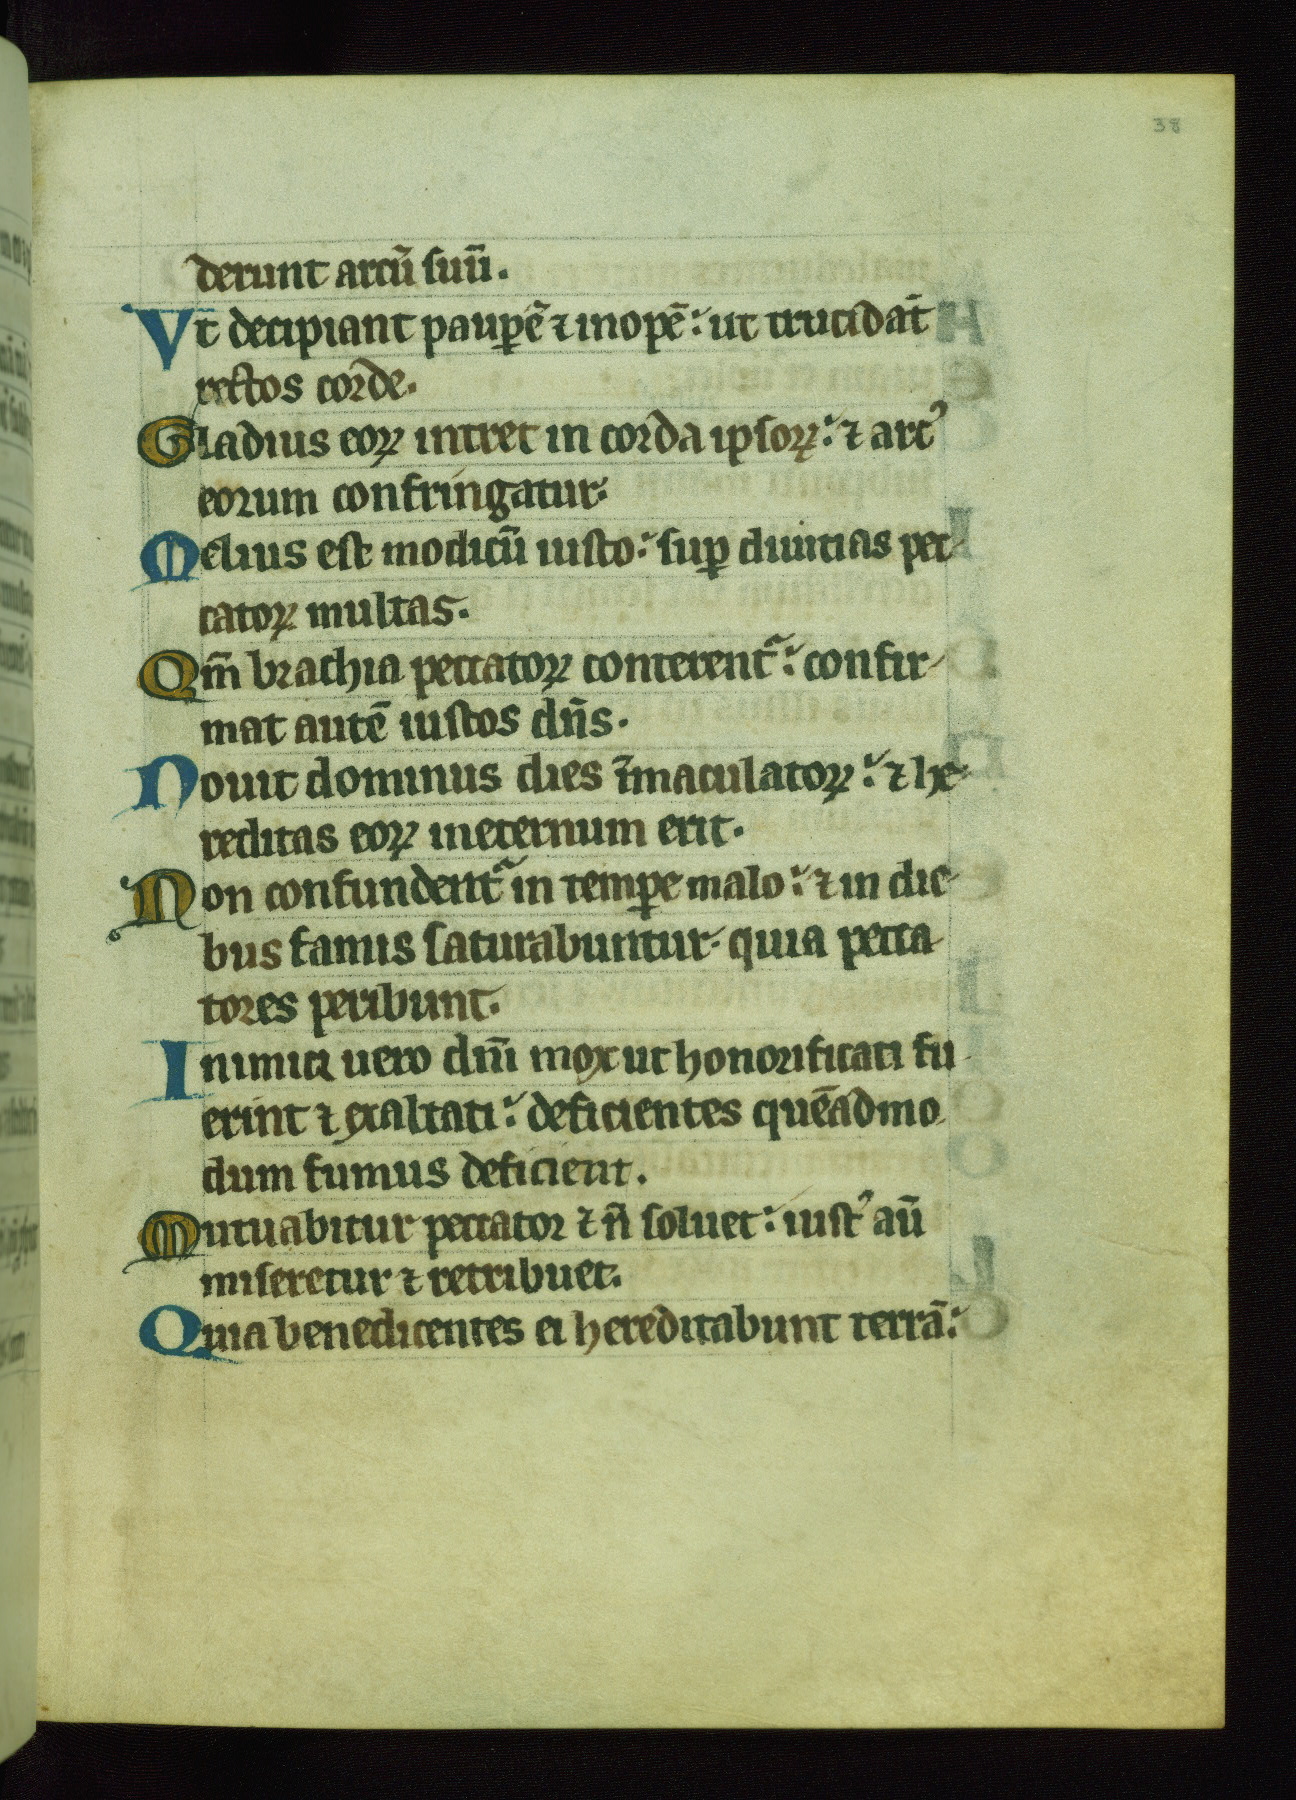 38
derunt arcū suū.
Vt decipiant pauꝑē ⁊ inopē: ut trucidāt
rectos corde.
Gladius eoꝝ intret in corda ipsoꝝ: ⁊ arcꝰ
eorum confringatur.
Melius est modicū iusto: suꝑ diuitias pec-
catoꝝ multas.
Qm̄ brachia peccatoꝝ conterent᷑: confir-
mat autē iustos dn̄s.
Nouit dominus dies īmaculatoꝝ: ⁊ he-
reditas eoꝝ ineternum erit.
Non confundent᷑ in temꝑe malo: ⁊ in die-
bus famis saturabuntur. quia pecca-
tores peribunt.
Inimici uero dn̄i mox ut honorificati fu-
erint ⁊ exaltati: deficientes quēadmo-
dum fumus deficient.
Mutuabitur peccator ⁊ n̄ soluet: iustꝰ aū
miseretur ⁊ retribuet.
Quia benedicentes ei hereditabunt terrā: